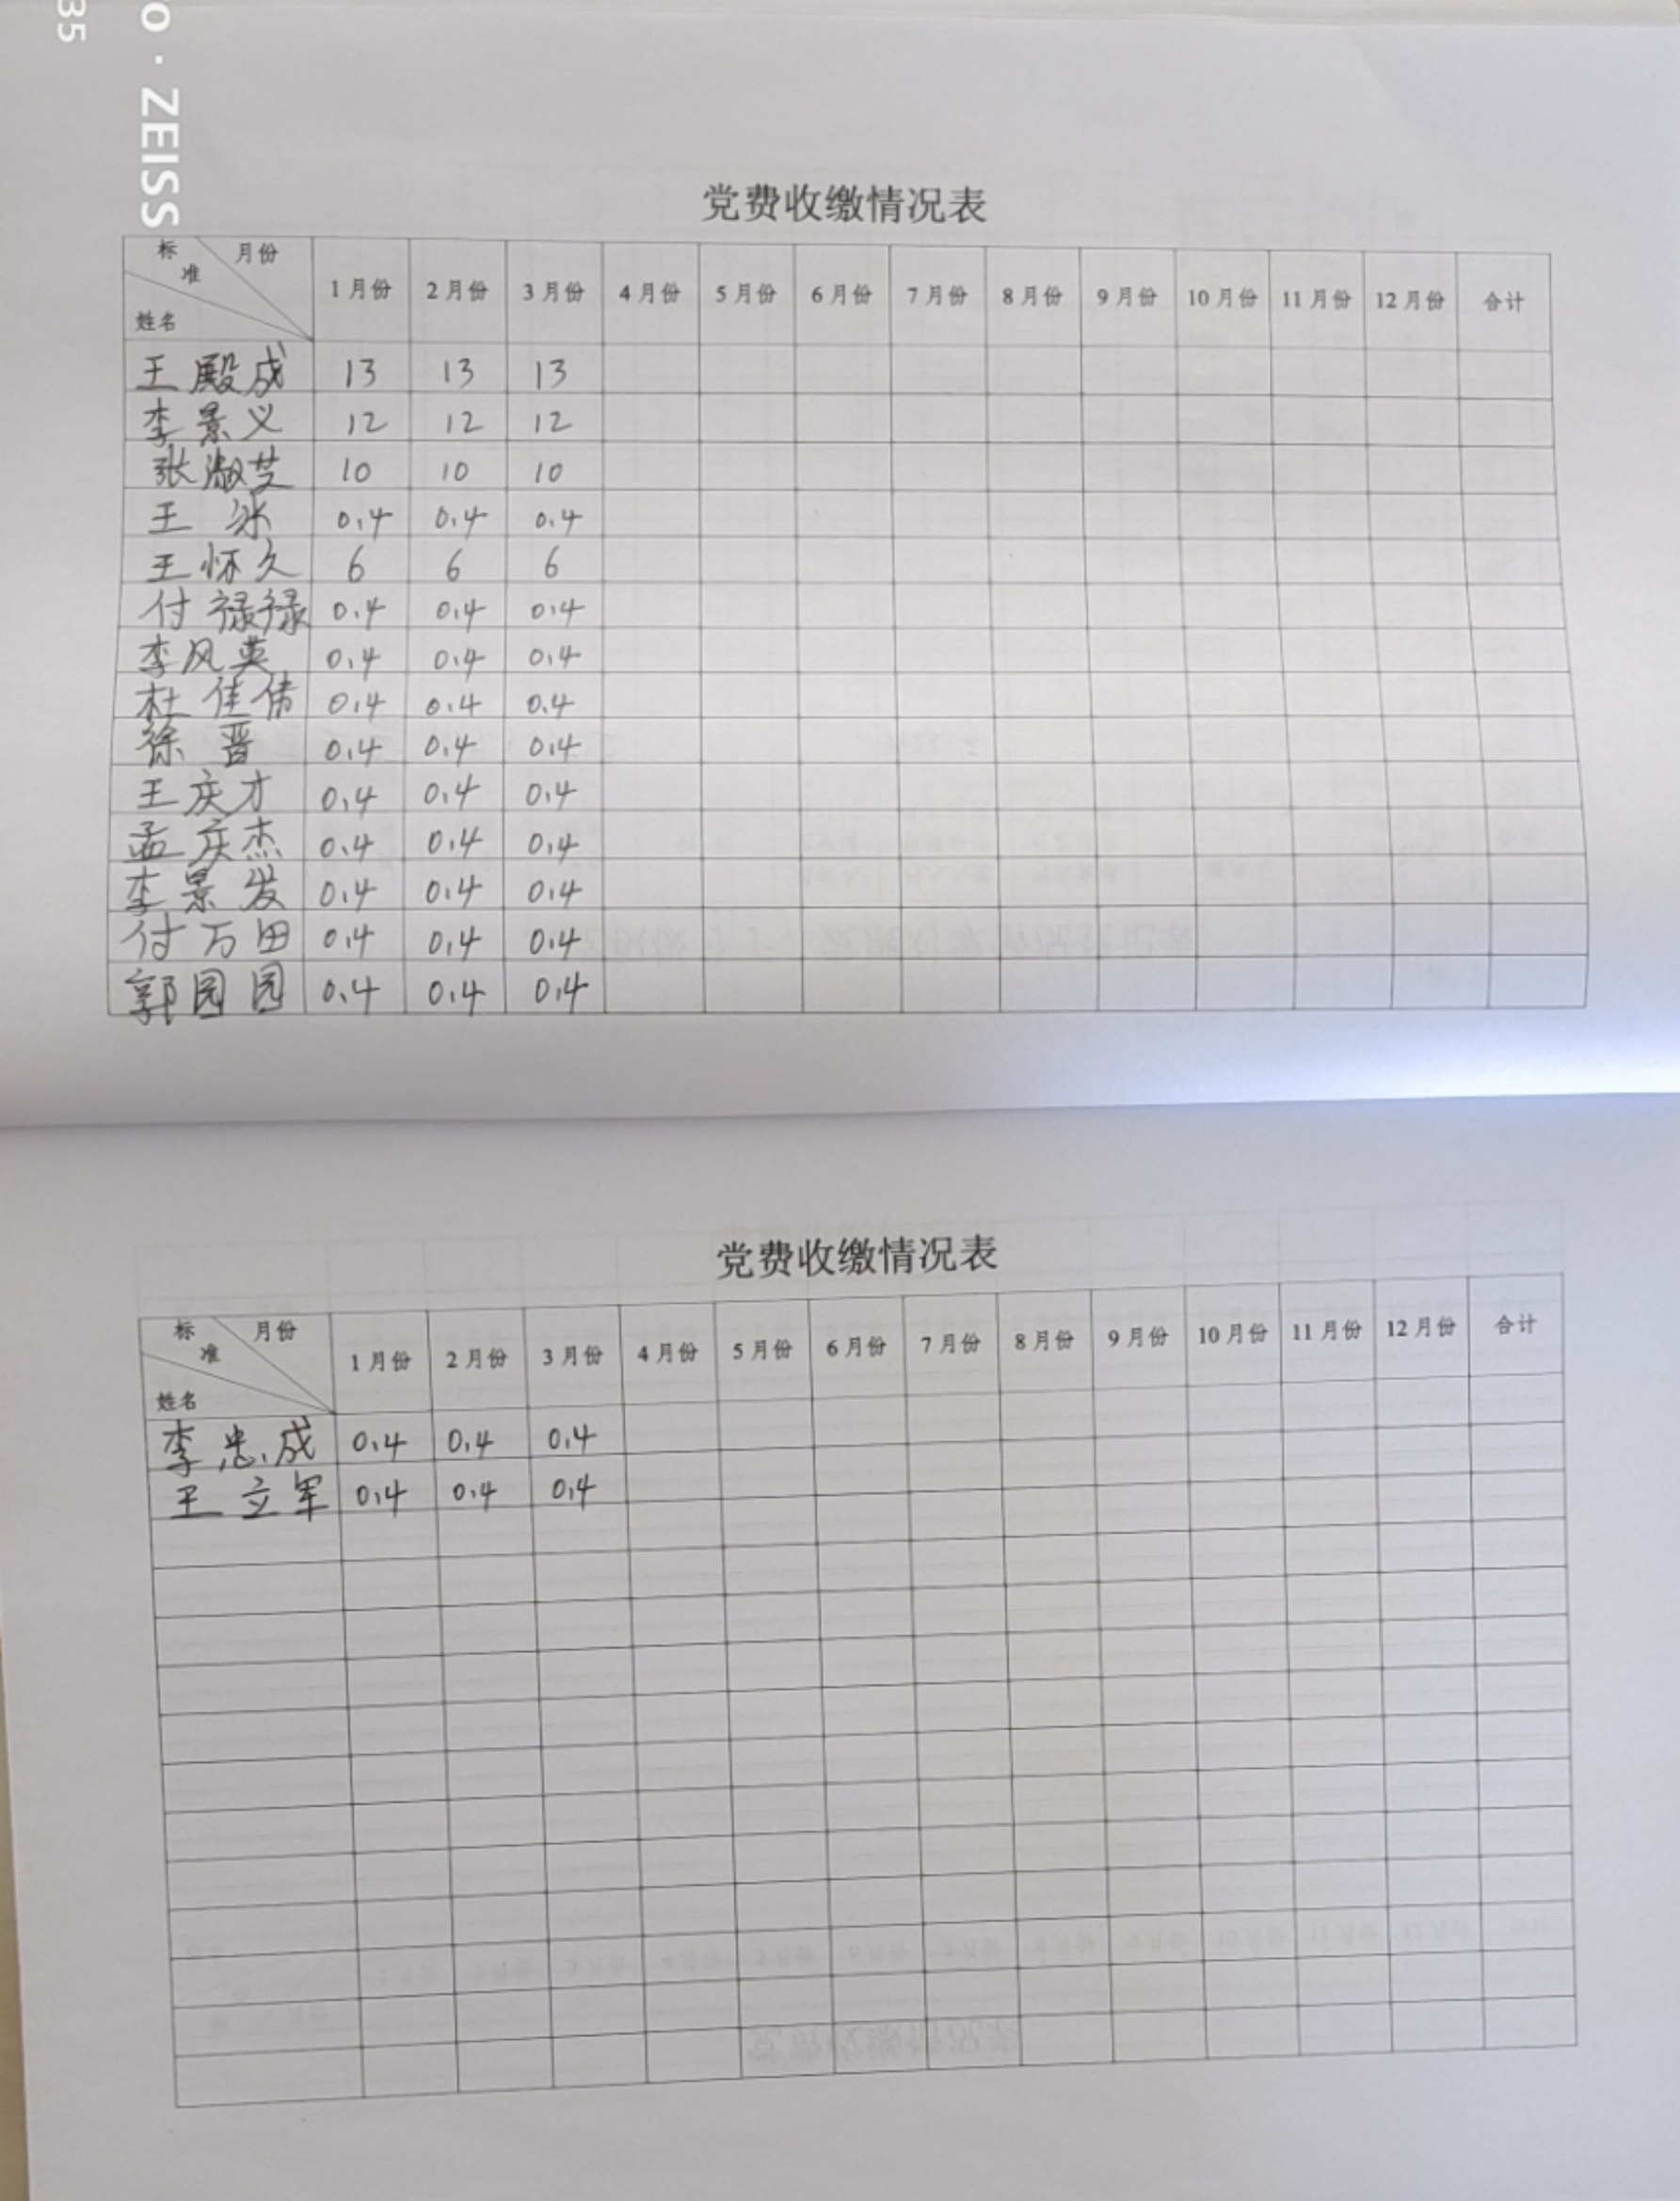 35
O · ZEISS
党费收缴情况表
标准 月份 姓名 1月份 2月份 3月份 4月份 5月份 6月份 7月份 8月份 9月份 10月份 11月份 12月份 合计
王殿成 13 13 13
李景义 12 12 12
张淑芝 10 10 10
王冰 0.4 0.4 0.4
王怀久 6 6 6
付禄禄 0.4 0.4 0.4
李风英 0.4 0.4 0.4
杜佳伟 0.4 0.4 0.4
徐晋 0.4 0.4 0.4
王庆才 0.4 0.4 0.4
孟庆杰 0.4 0.4 0.4
李景发 0.4 0.4 0.4
付万田 0.4 0.4 0.4
郭园园 0.4 0.4 0.4
党费收缴情况表
标准 月份 姓名 1月份 2月份 3月份 4月份 5月份 6月份 7月份 8月份 9月份 10月份 11月份 12月份 合计
李忠成 0.4 0.4 0.4
王立军 0.4 0.4 0.4